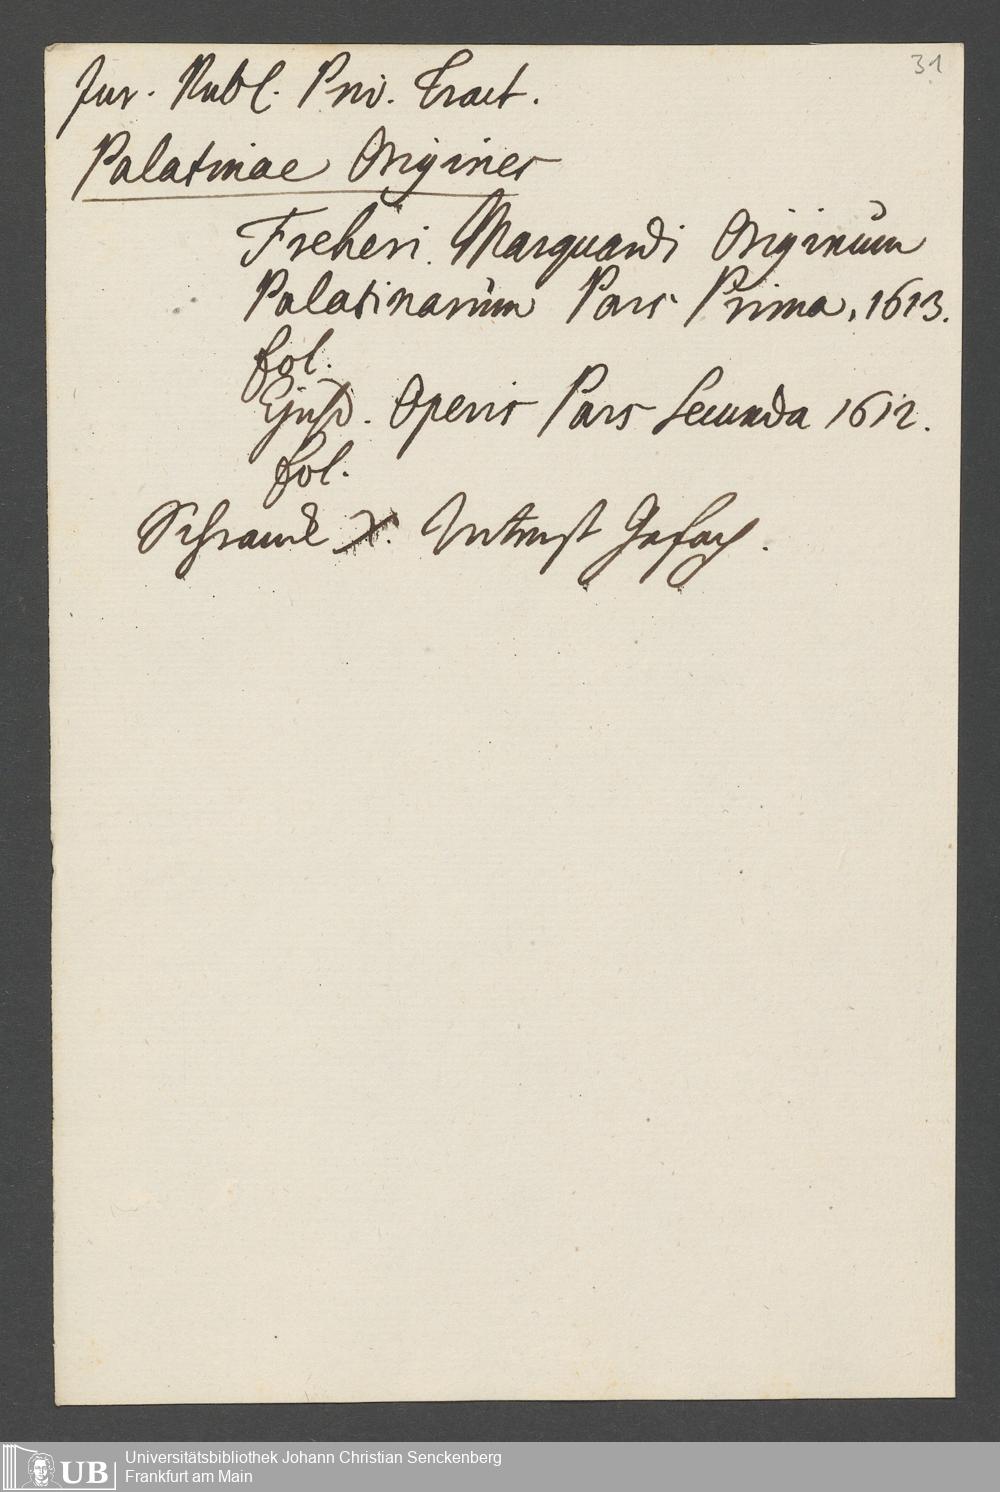 31
Jur. Publ. Priv. Tract.
Palatinae Origines
Freheri. Marquardi Originum
Palatinarum Pars Prima, 1613.
fol.
Ejusd. Operis Pars Secunda 1612.
fol.
Schrank X. Unterst Gefach.
Universitätsbibliothek Johann Christian Senckenberg
UB Frankfurt am Main